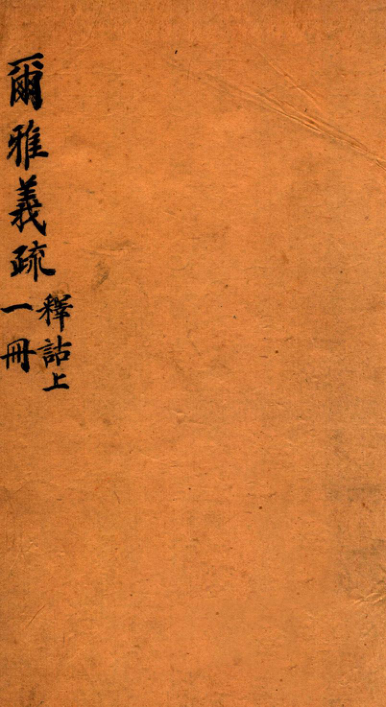 爾雅義疏
釋詁上
一冊